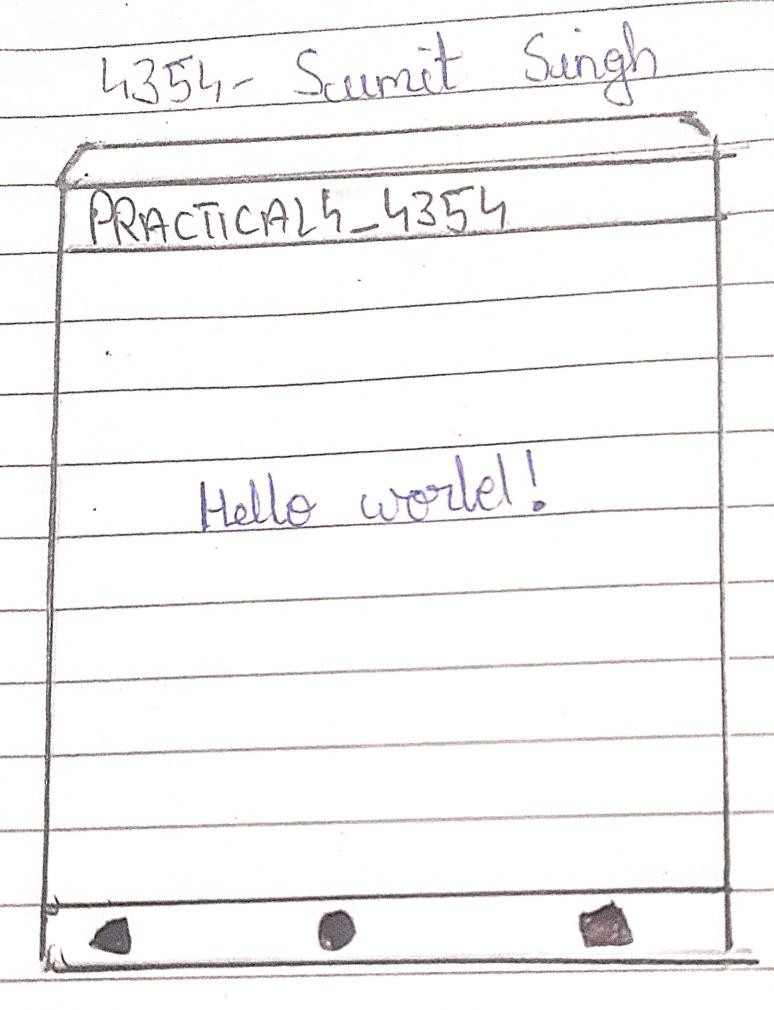 4354- Sumit Singh
PRACTICAL4_4354
Hello world!